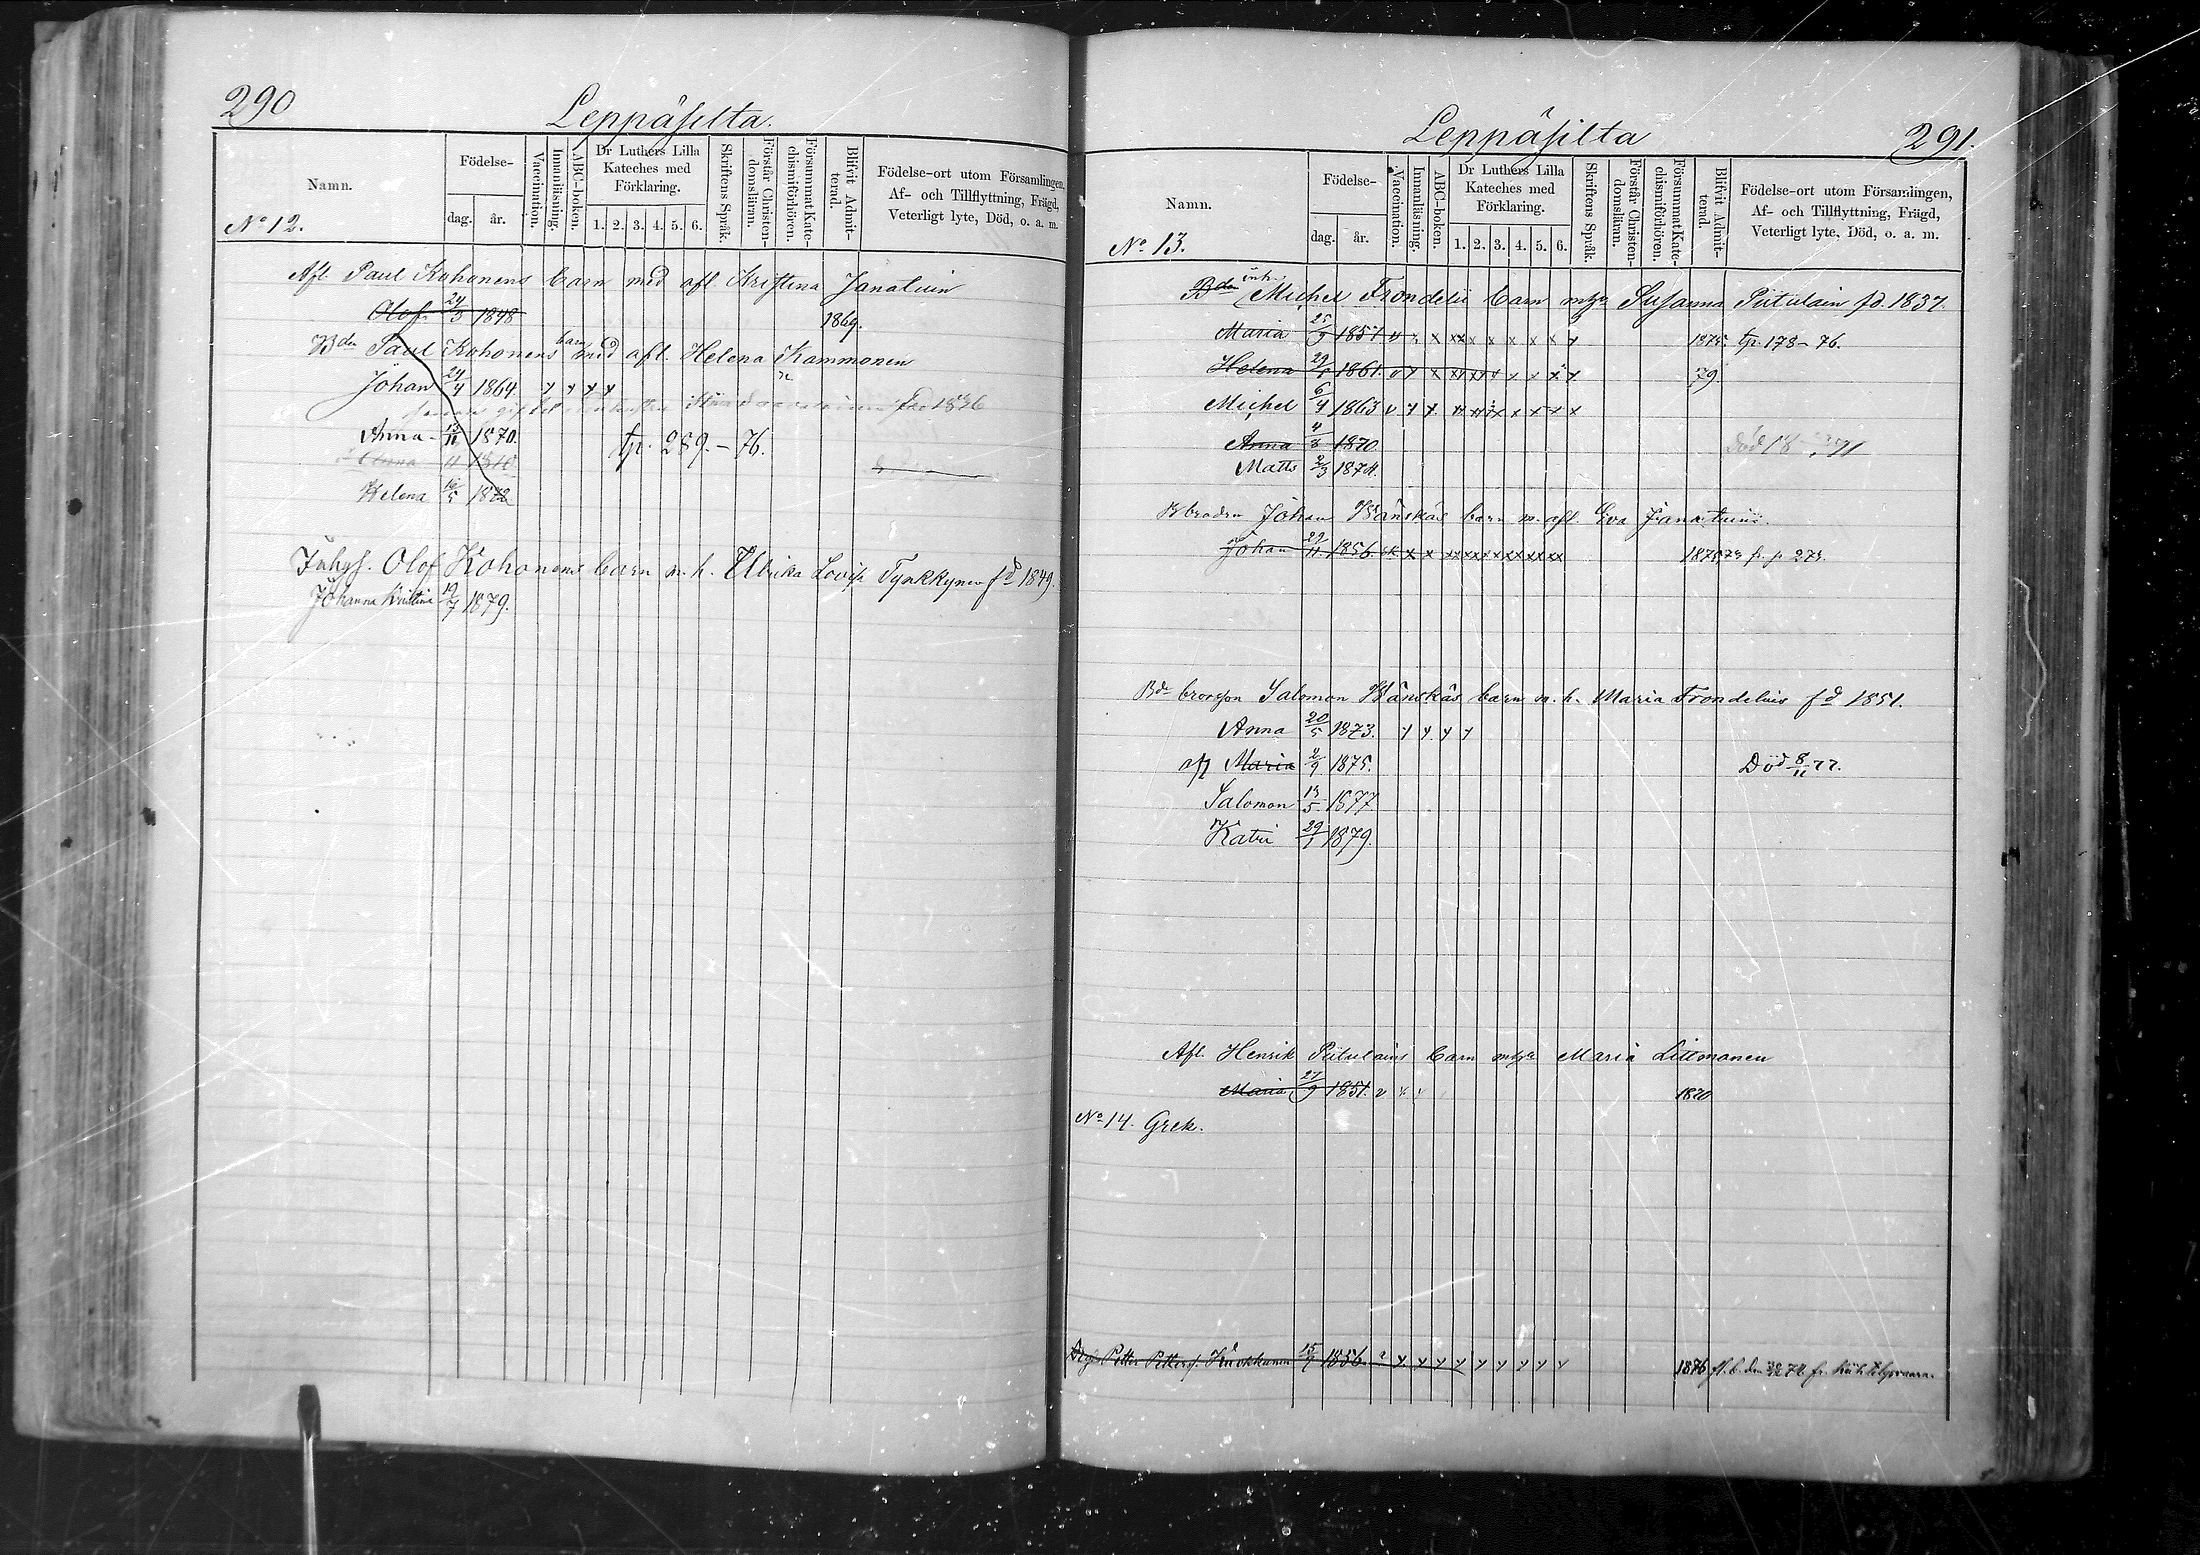 290
Leppäsilta.
Namn.
No 12.
Födelse-
dag. år.
Vaccination.
Innanläsning.
ABC-boken.
Dr Luthers Lilla Kateches med Förklaring.
1. 2. 3. 4. 5. 6.
Skriftens Språk.
Förstår Christendomsläran.
Försummat Katechismiförhören.
Blifvit Admitterad.
Födelse-ort utom Församlingen,
Af- och Tillflyttning, Frägd,
Veterligt lyte, Död, o. a. m.
Afl. Paul Kohonens barn med afl Kristina Janatuin
Olof 24/3 1848 1869.
Bdn Paul Kohonens barn med afl. Helena Kammonen
Johan 24/4 1864 y y y y
fd 1836
Anna 13/11 1870. tp. 289.-76.
Anna 11 1810
Helena 16/5 1872
Inhys. Olof Kohonens barn m. h. Ulrika Lovisa Tynkkynen fd 1849.
Johanna Kristina 19/7 1879.
Leppäsilta
291.
Namn.
No 13.
Födelse-
dag. år.
Vaccination.
Innanläsning.
ABC-boken.
Dr Luthers Lilla Kateches med Förklaring.
1. 2. 3. 4. 5. 6.
Skriftens Språk.
Förstår Christendomsläran.
Försummat Katechismiförhören.
Blifvit Admitterad.
Födelse-ort utom Församlingen,
Af- och Tillflyttning, Frägd,
Veterligt lyte, Död, o. a. m.
Bdn inh. Michel Frondelii barn m Susanna Piitulain fd. 1837.
Maria 25/9 1857 v x x xx x x x x x y 1875. tp. 178-76.
Helena 29/1 1861. v y x xx xx x y x x y 79.
Michel 6/4 1863 v y y. x x x x x
Anna 4/8 1870 Död 18 71
Matts 2/3 1874.
B brodrn Johan Wänskäs barn m. afl. Eva Janatuin.
Johan 29/11 1856. x x xx xx xx xx xx 1875 p 273.
Bdn brorson Salomon Wänskäs barn m. h. Maria Frondelius fd 1851.
Anna 20/5 1873. y y y y
Maria 2/9 1875. Död 8/11 77.
Salomon 13/5 1877
Katri 29/1 1879.
Afl. Henrik Piitulains barn m Maria Litmanen
Maria 27/9 1851. v 1870
No 14. Grek.
Petter Petters. Kuokkanen 15/7 1856 y y y y y y y y y 1876 74 fr.